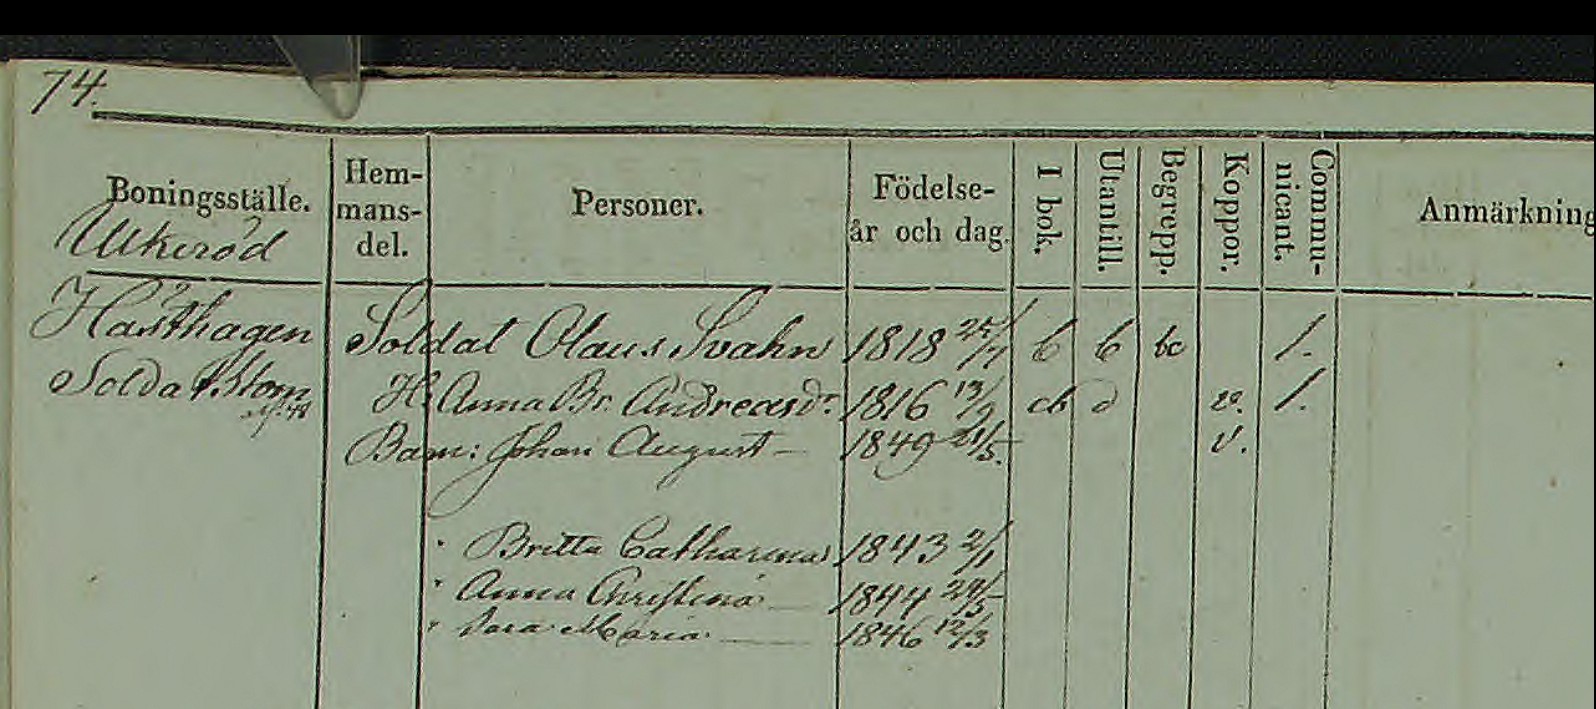 74.
Boningsställe. Hem-mans-del. Personer. Födelse-år och dag. I bok. Utantill. Begrepp. Koppor. Commu-nicant. Anmärkning
Ulkeröd
Hästhagen Soldat Olaus Svahn 1818 25/7 b b bc 1.
Soldat. H. Anna Br. Andreasdr. 1816 13/9 cb d v. 1.
No 48
Barn: Johan August 1849 21/5. v.
Britta Catharina 1843 2/1
Anna Christina 1844 29/5
Sara Maria 1846 12/3